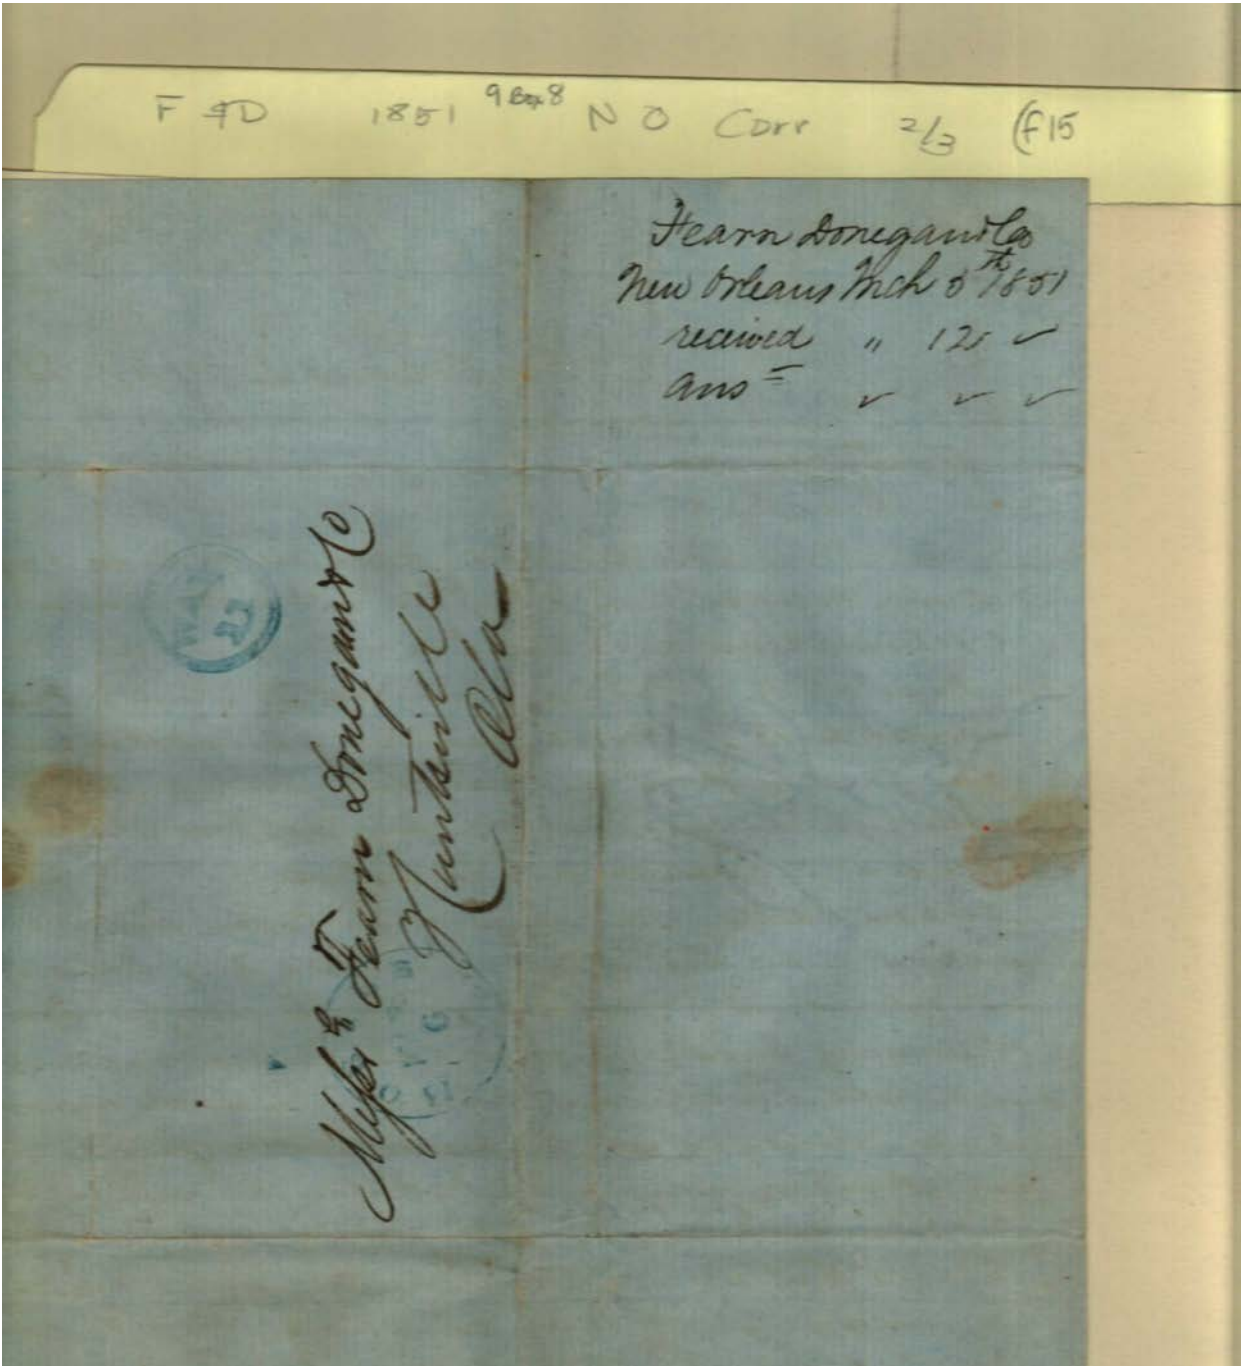 F & D 1851 9 Box 8 N O Corr 2/3 (F15
Fearn Donegan & Co
New Orleans Mch 5th 1851
received " 12
ans
Messrs Fearn Donegan & Co
Huntsville
Ala
WAY
6